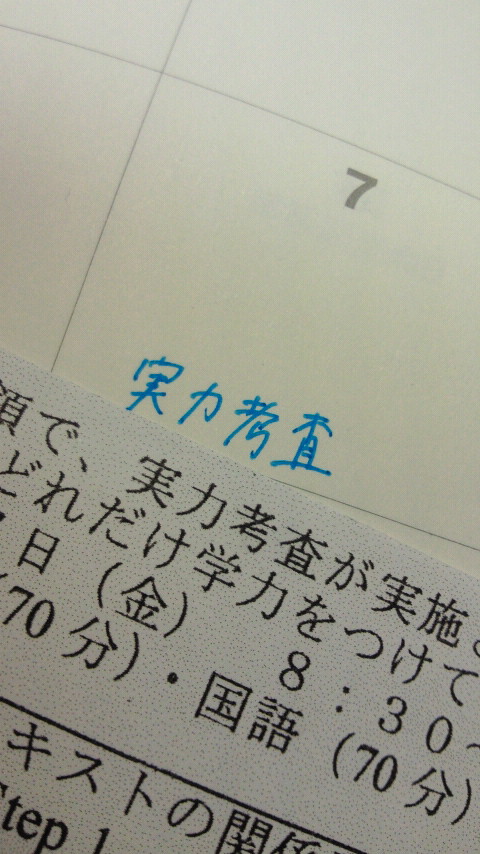 7
実力考査
領で、実力考査が実施
どれだけ学力をつけて
7日(金) 8:30~
(70分)・国語(70分)
キストの関係
Step 1